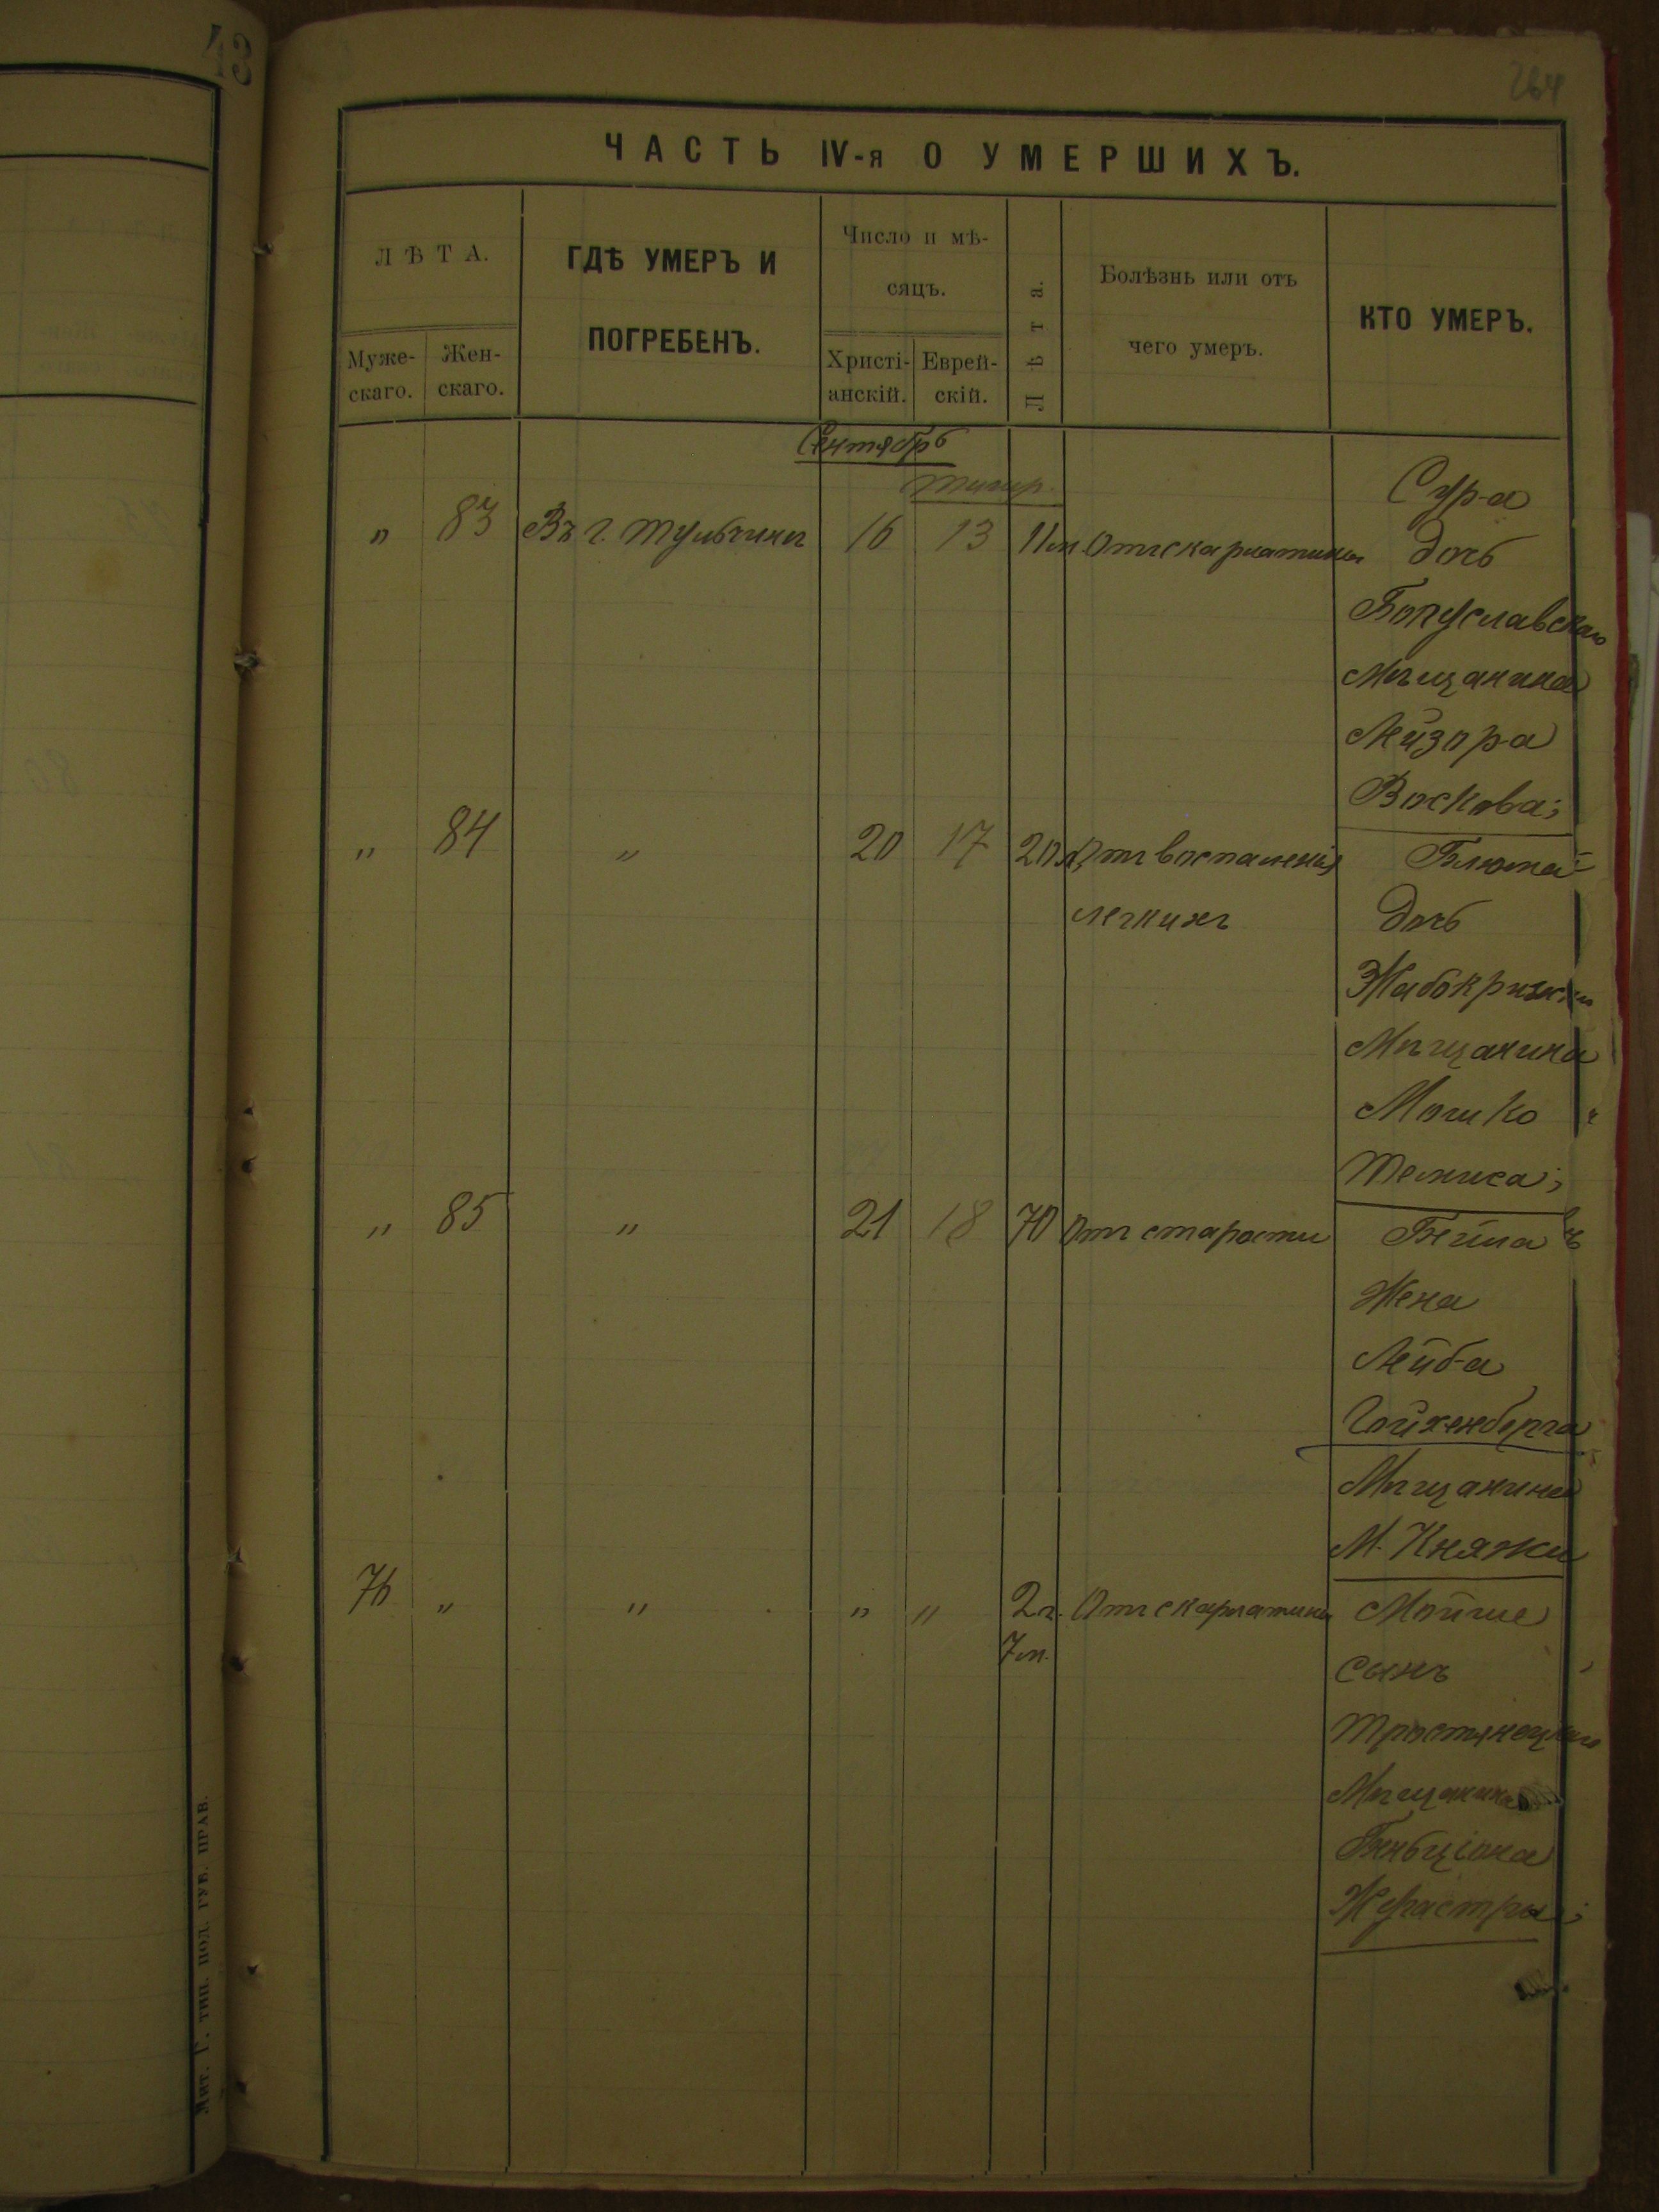 43
264
ЧАСТЬ IV-я О УМЕРШИХЪ.
ЛѢТА.
Муже-
скаго.
Жен-
скаго.
ГДѢ УМЕРЪ И
ПОГРЕБЕНЪ.
Число и мѣ-
сяцъ.
Христі-
анскій.
Еврей-
скій.
Лѣта.
Болѣзнь или отъ
чего умеръ.
КТО УМЕРЪ.
Сентябрь
Тишр.
„ 83 Въ г. Тульчинѣ 16 13 11 м. Отъ скарлатины
Сура
дочь
Богуславскаго
Мѣщанина
Лейзора
Воскова;
„ 84 „ 20 17 20 л. Отъ воспаленія
легкихъ
Блюма
дочь
Мѣщанина
Мошко
„ 85 „ 21 18 70 Отъ старости
Бейла
Жена
Лейба
Гойхенберга
Мѣщанина
М. Княжи
76 „ „ „ „ 2 г. Отъ скарлатины
7 м.
Мойше
сынъ
Тростянецкаго
Мѣщанина
Беньціона
Мит. Г. тип. под. губ. прав.